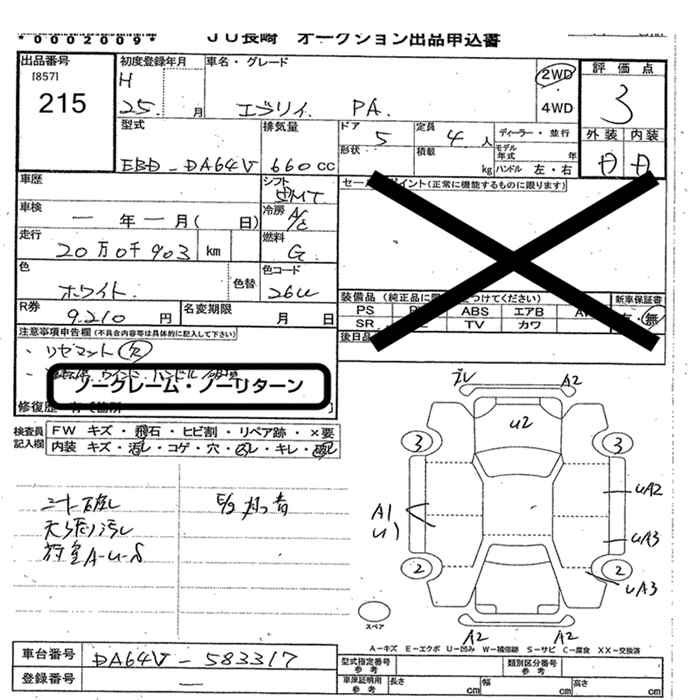 *0002009* JU長崎 オークション出品申込書
出品番号
[857]
215
初度登録年月
H
25. 月
車名・グレード
エブリイ. PA.
2WD
4WD
評価点
3
外装 内装
型式
EBD-DA64V
排気量
660cc
ドア 5
形状
定員 4人
積載 kg
ディーラー・並行
モデル年式 年
ハンドル 左・右
車歴
シフト
車検
一年一月( 日)
冷房
A/C
走行
20万0千903 km
燃料
G
色
ホワイト.
色替
色コード
26U
R券
9.210 円
名変期限
月 日
セールスポイント(正常に機能するものに限ります)
装備品(純正品に つけてください)
新車保証書
PS ABS エアB
有・無
SR TV カワ
後日品
注意事項申告欄(不具合内容等は具体的に記入して下さい)
ノークレーム・ノーリターン
修復歴
検査員記入欄
FW キズ・飛石・ヒビ割・リペア跡・×要
内装 キズ・汚レ・コゲ・穴・凹レ・キレ・
シート破レ
天張り汚レ
荷室A-U-S
A2
U2
3 3
A1
U1
UA2
UA3
2 2
UA3
スペア
A2 A2
A-キズ E-エクボ U-凹み W-補修跡 S-サビ C-腐食 XX-交換済
車台番号
DA64V-583317
登録番号
—
型式指定番号 参考
類別区分番号 参考
車庫証明用 参考 長さ cm 幅 cm 高さ cm